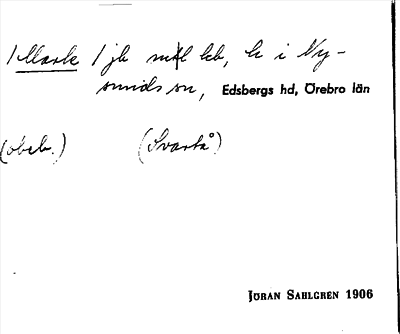 1 Mark 1 jb mtl lkb, h i Ny-
sunds sn, Edsbergs hd, Örebro län
(obeb.) (Svartå)
JÖRAN SAHLGREN 1906